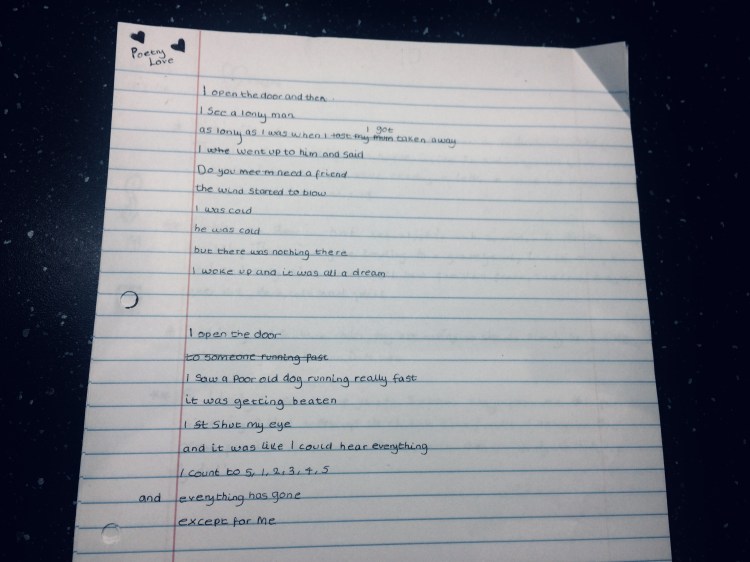 Poetry
Love
I open the door and then
I see a lonly man
as lonly as I was when I lost my mum I got taken away
I whe went up to him and said
Do you mee m need a friend
the wind started to blow
I was cold
he was cold
but there was nothing there
I woke up and it was all a dream
I open the door
to someone running fast
I saw a poor old dog running really fast
it was getting beaten
I st shut my eye
and it was like I could hear everything
I count to 5, 1, 2, 3, 4, 5
and everything has gone
except for me